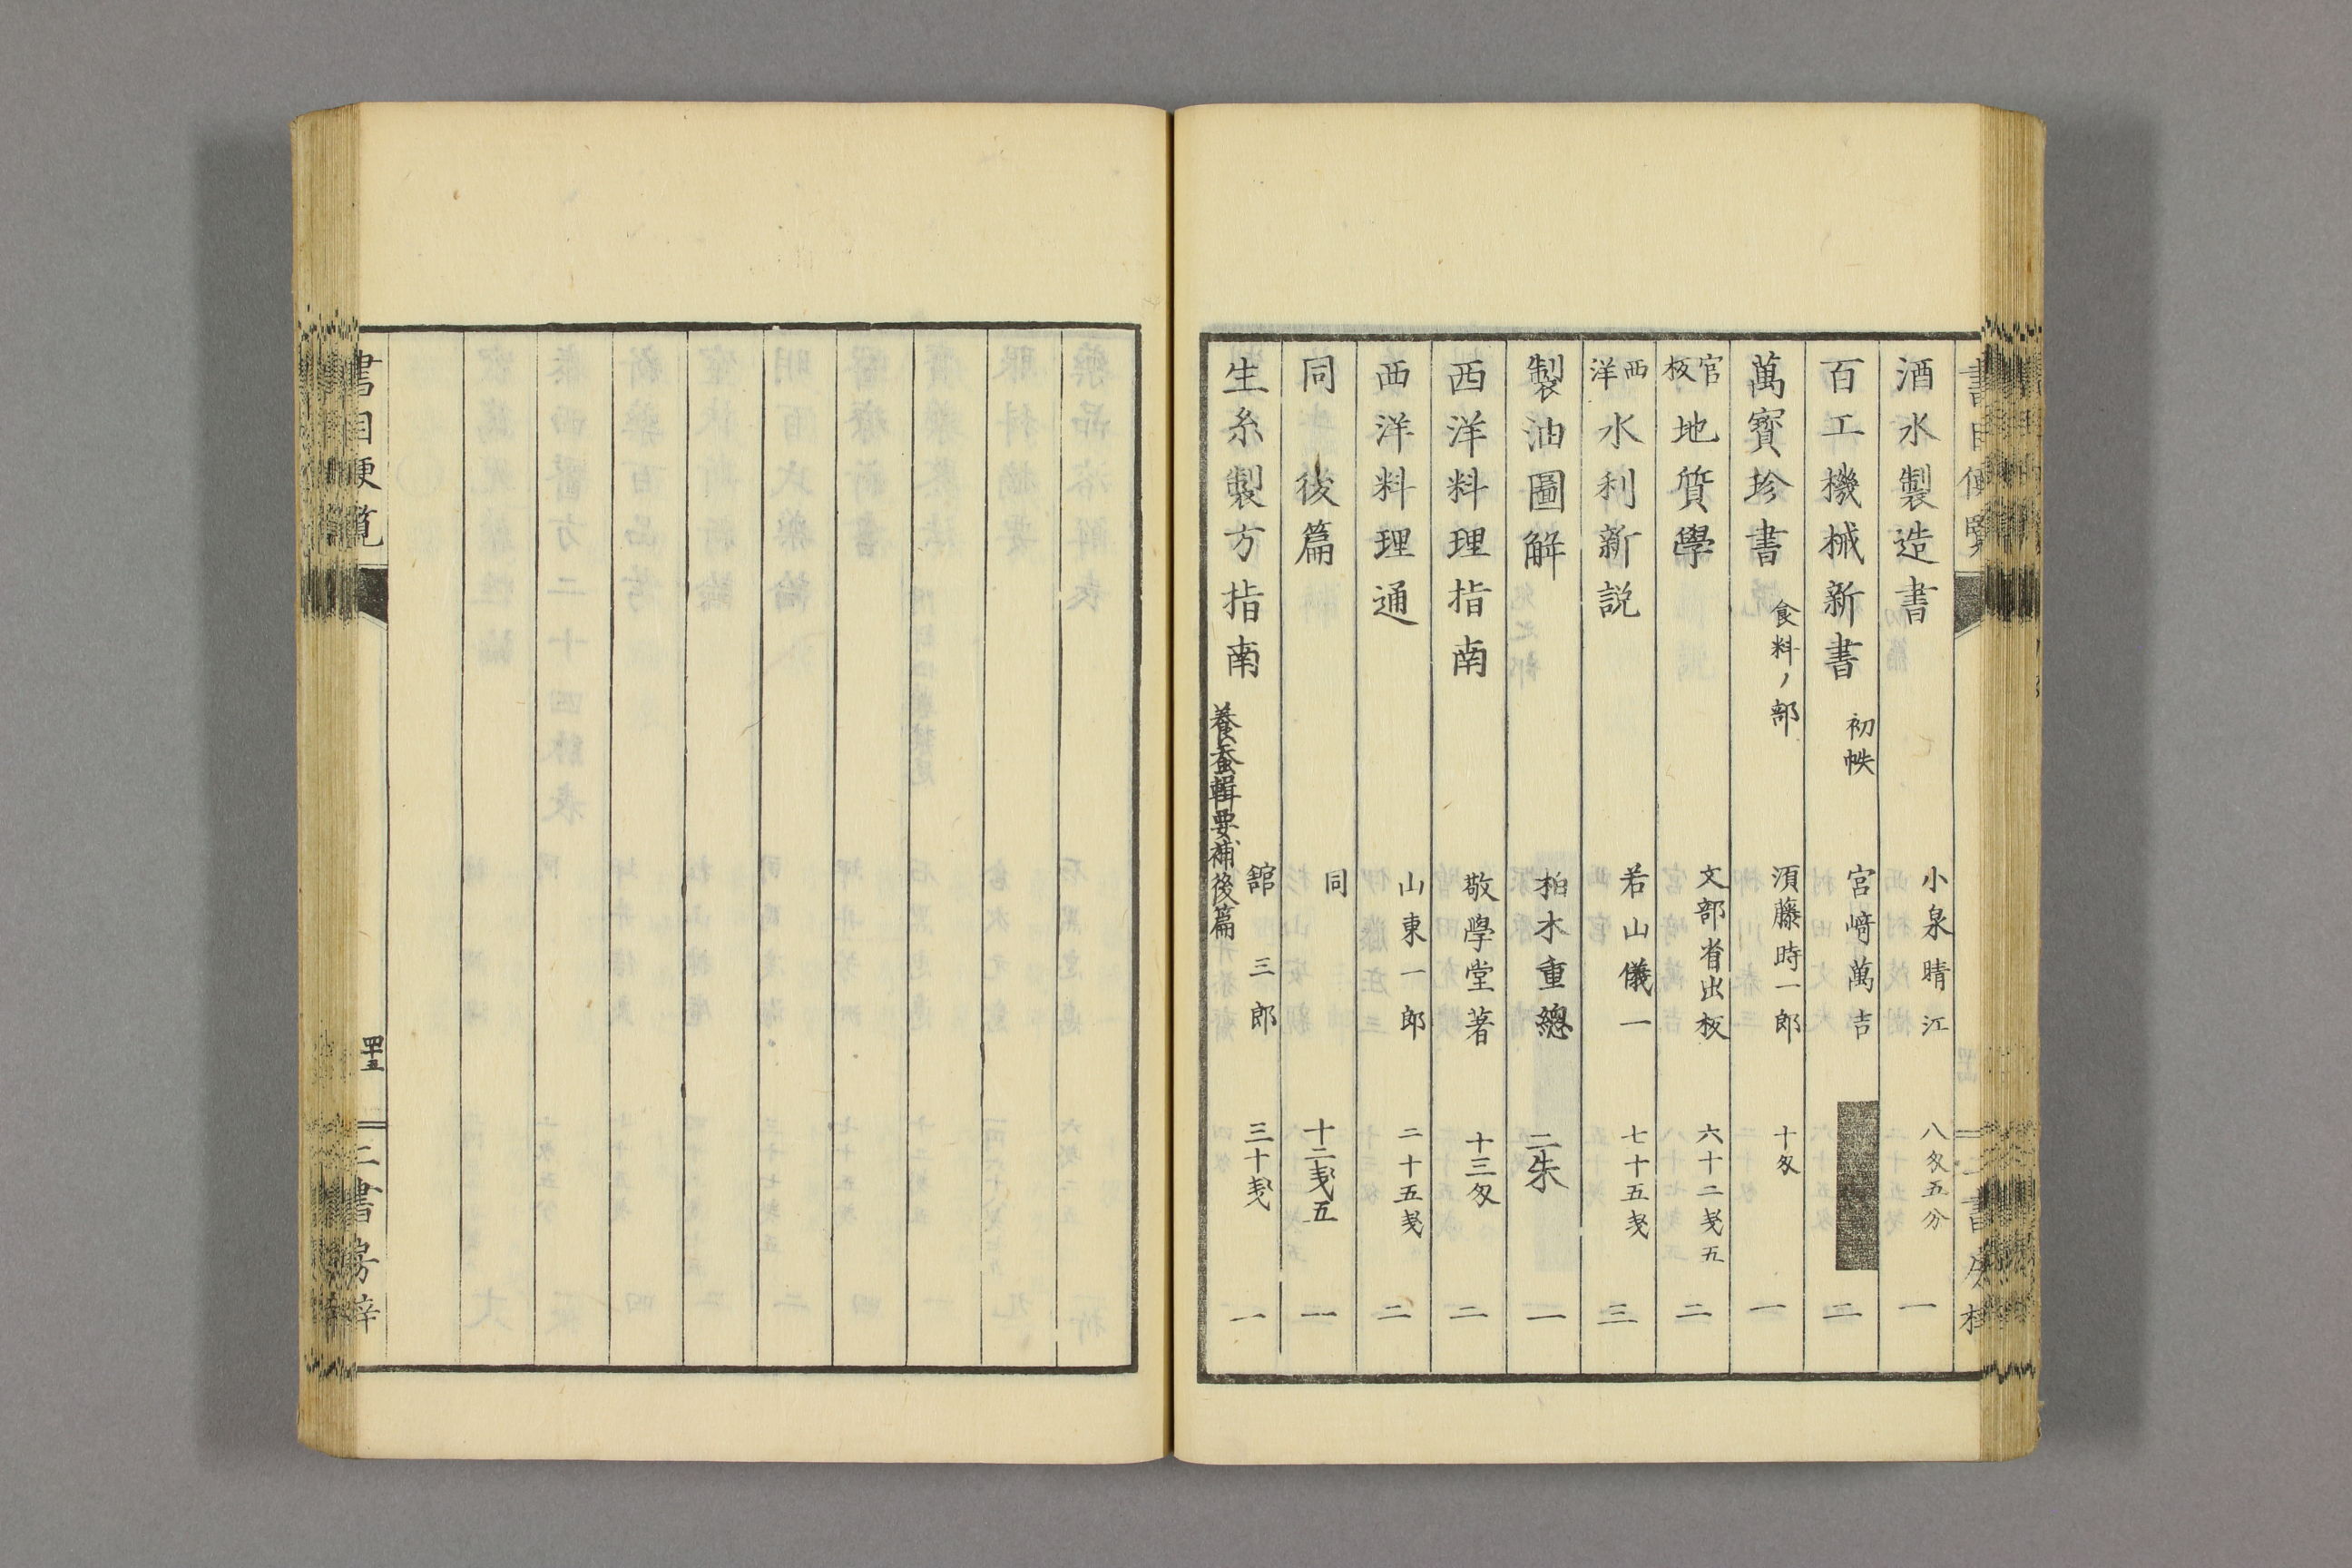 酒水製造書 小泉晴江 八匁五分 一
百工機械新書 初帙 宮﨑萬吉 二
萬寳珍書 食料ノ部 須藤時一郎 十匁 一
官板 地質學 文部省出板 六十二戔五 二
西洋 水利新説 若山儀一 七十五戔 三
製油圖解 柏木重總 二朱 一
西洋料理指南 敬學堂著 十三匁 二
西洋料理通 山東一郎 二十五戔 二
同 後篇 同 十二戔五 一
生糸製方指南 養蚕輯要補後篇 舘三郎 三十戔 一
書目便覧 四十五 三書房梓